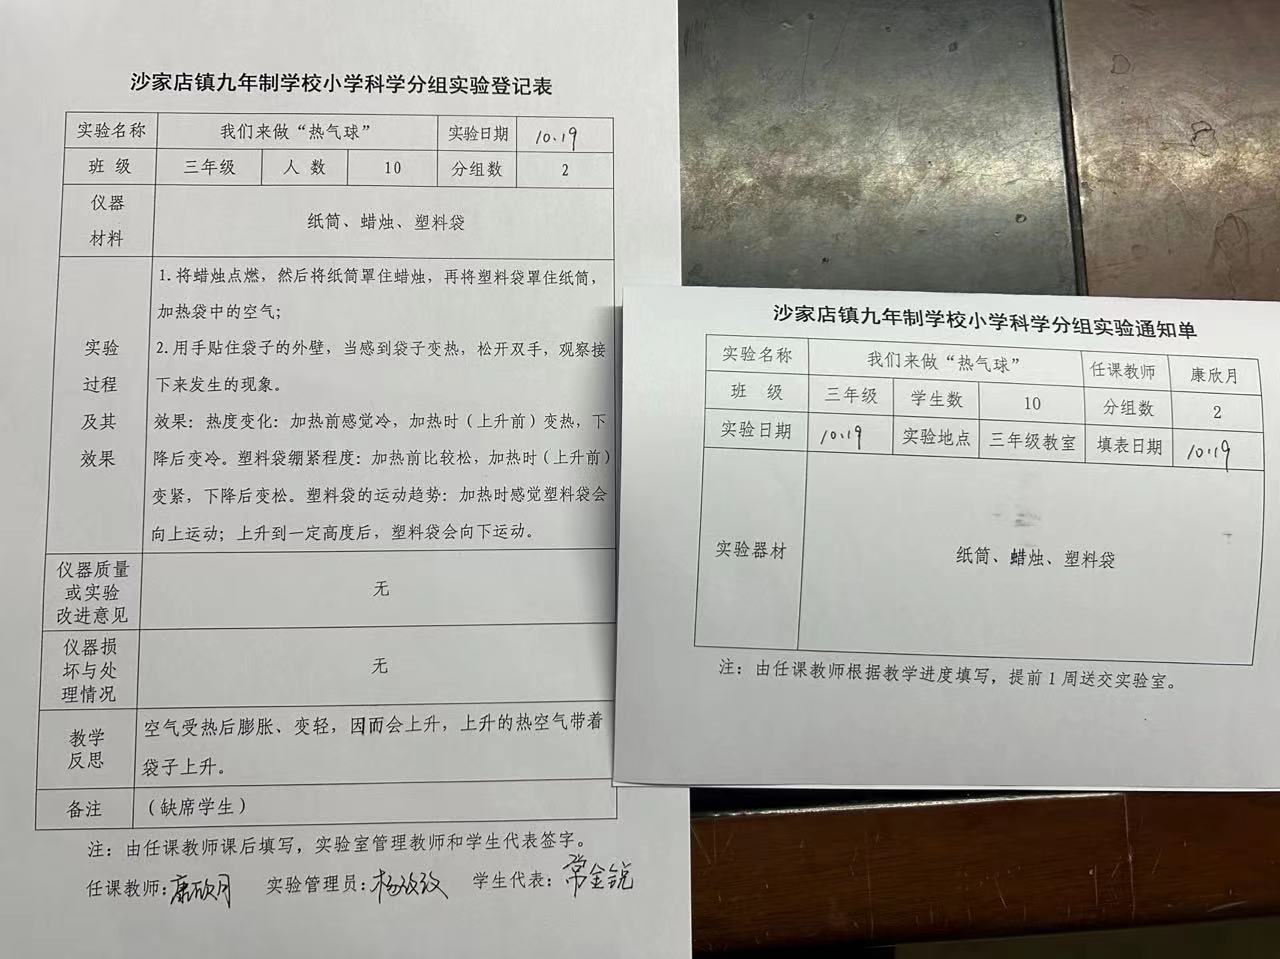 沙家店镇九年制学校小学科学分组实验登记表
实验名称 我们来做“热气球” 实验日期 10.19
班 级 三年级 人 数 10 分组数 2
仪器
材料
纸筒、蜡烛、塑料袋
实验
过程
及其
效果
1.将蜡烛点燃，然后将纸筒罩住蜡烛，再将塑料袋罩住纸筒，
加热袋中的空气；
2.用手贴住袋子的外壁，当感到袋子变热，松开双手，观察接
下来发生的现象。
效果：热度变化：加热前感觉冷，加热时（上升前）变热，下
降后变冷。塑料袋绷紧程度：加热前比较松，加热时（上升前）
变紧，下降后变松。塑料袋的运动趋势：加热时感觉塑料袋会
向上运动；上升到一定高度后，塑料袋会向下运动。
仪器质量
或实验
改进意见
无
仪器损
坏与处
理情况
无
教学
反思
空气受热后膨胀、变轻，因而会上升，上升的热空气带着
袋子上升。
备注 （缺席学生）
注：由任课教师课后填写，实验室管理教师和学生代表签字。
任课教师：康欣月 实验管理员： 学生代表：常金锐
沙家店镇九年制学校小学科学分组实验通知单
实验名称 我们来做“热气球” 任课教师 康欣月
班 级 三年级 学生数 10 分组数 2
实验日期 10.19 实验地点 三年级教室 填表日期 10.19
实验器材 纸筒、蜡烛、塑料袋
注：由任课教师根据教学进度填写，提前1周送交实验室。